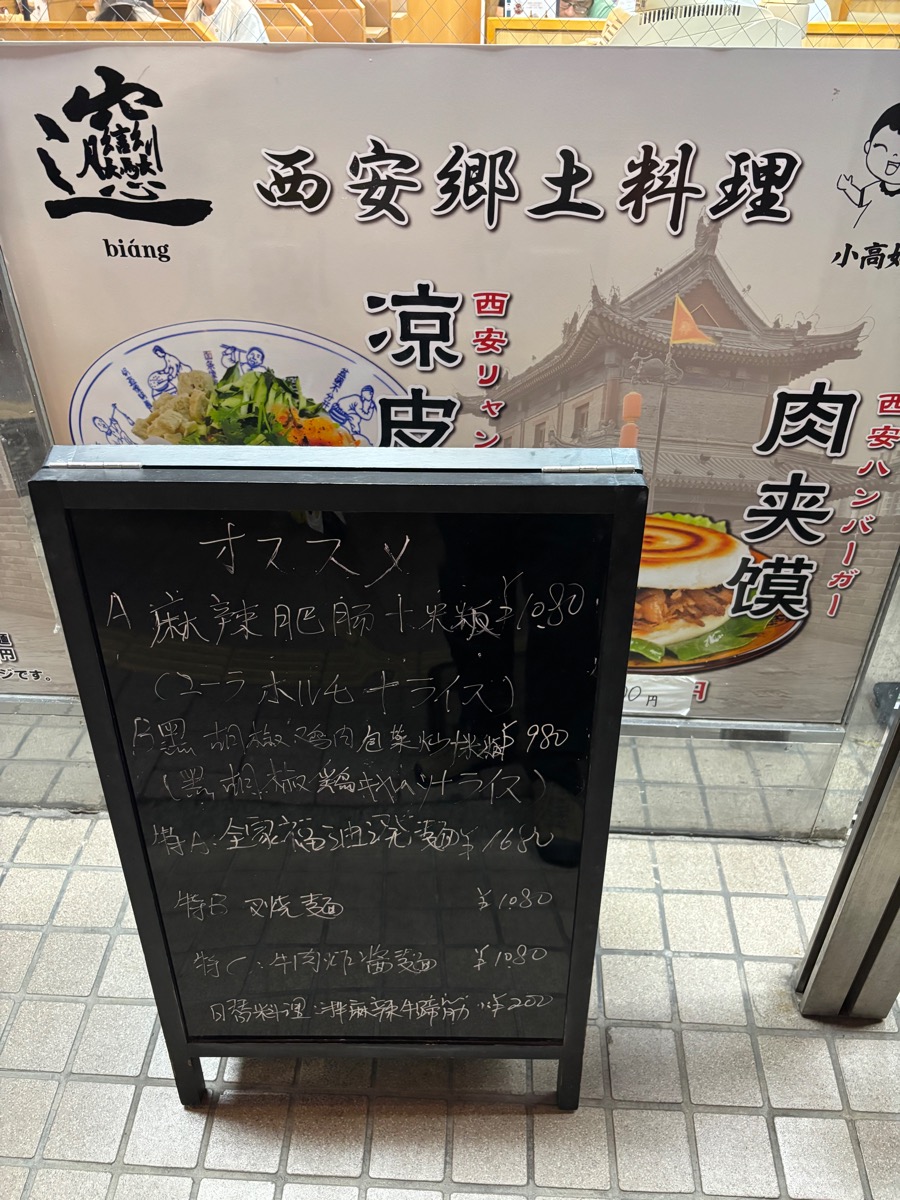 biáng
西安郷土料理
小高
凉皮
西安リャン
肉夹馍
西安ハンバーガー
円
ジです。
00円
円
オススメ
A 麻辣肥肠+米飯 ¥1080
(マーラーホルモン+ライス)
B 黑胡椒鸡肉包菜炒+米飯 ¥980
(黑胡椒鶏キャベツ+ライス)
特A:全家福油泼麺 ¥1680
特B 叉烧麺 ¥1080
特C:牛肉炸酱麺 ¥1080
日替料理:拌麻辣牛蹄筋 ¥200